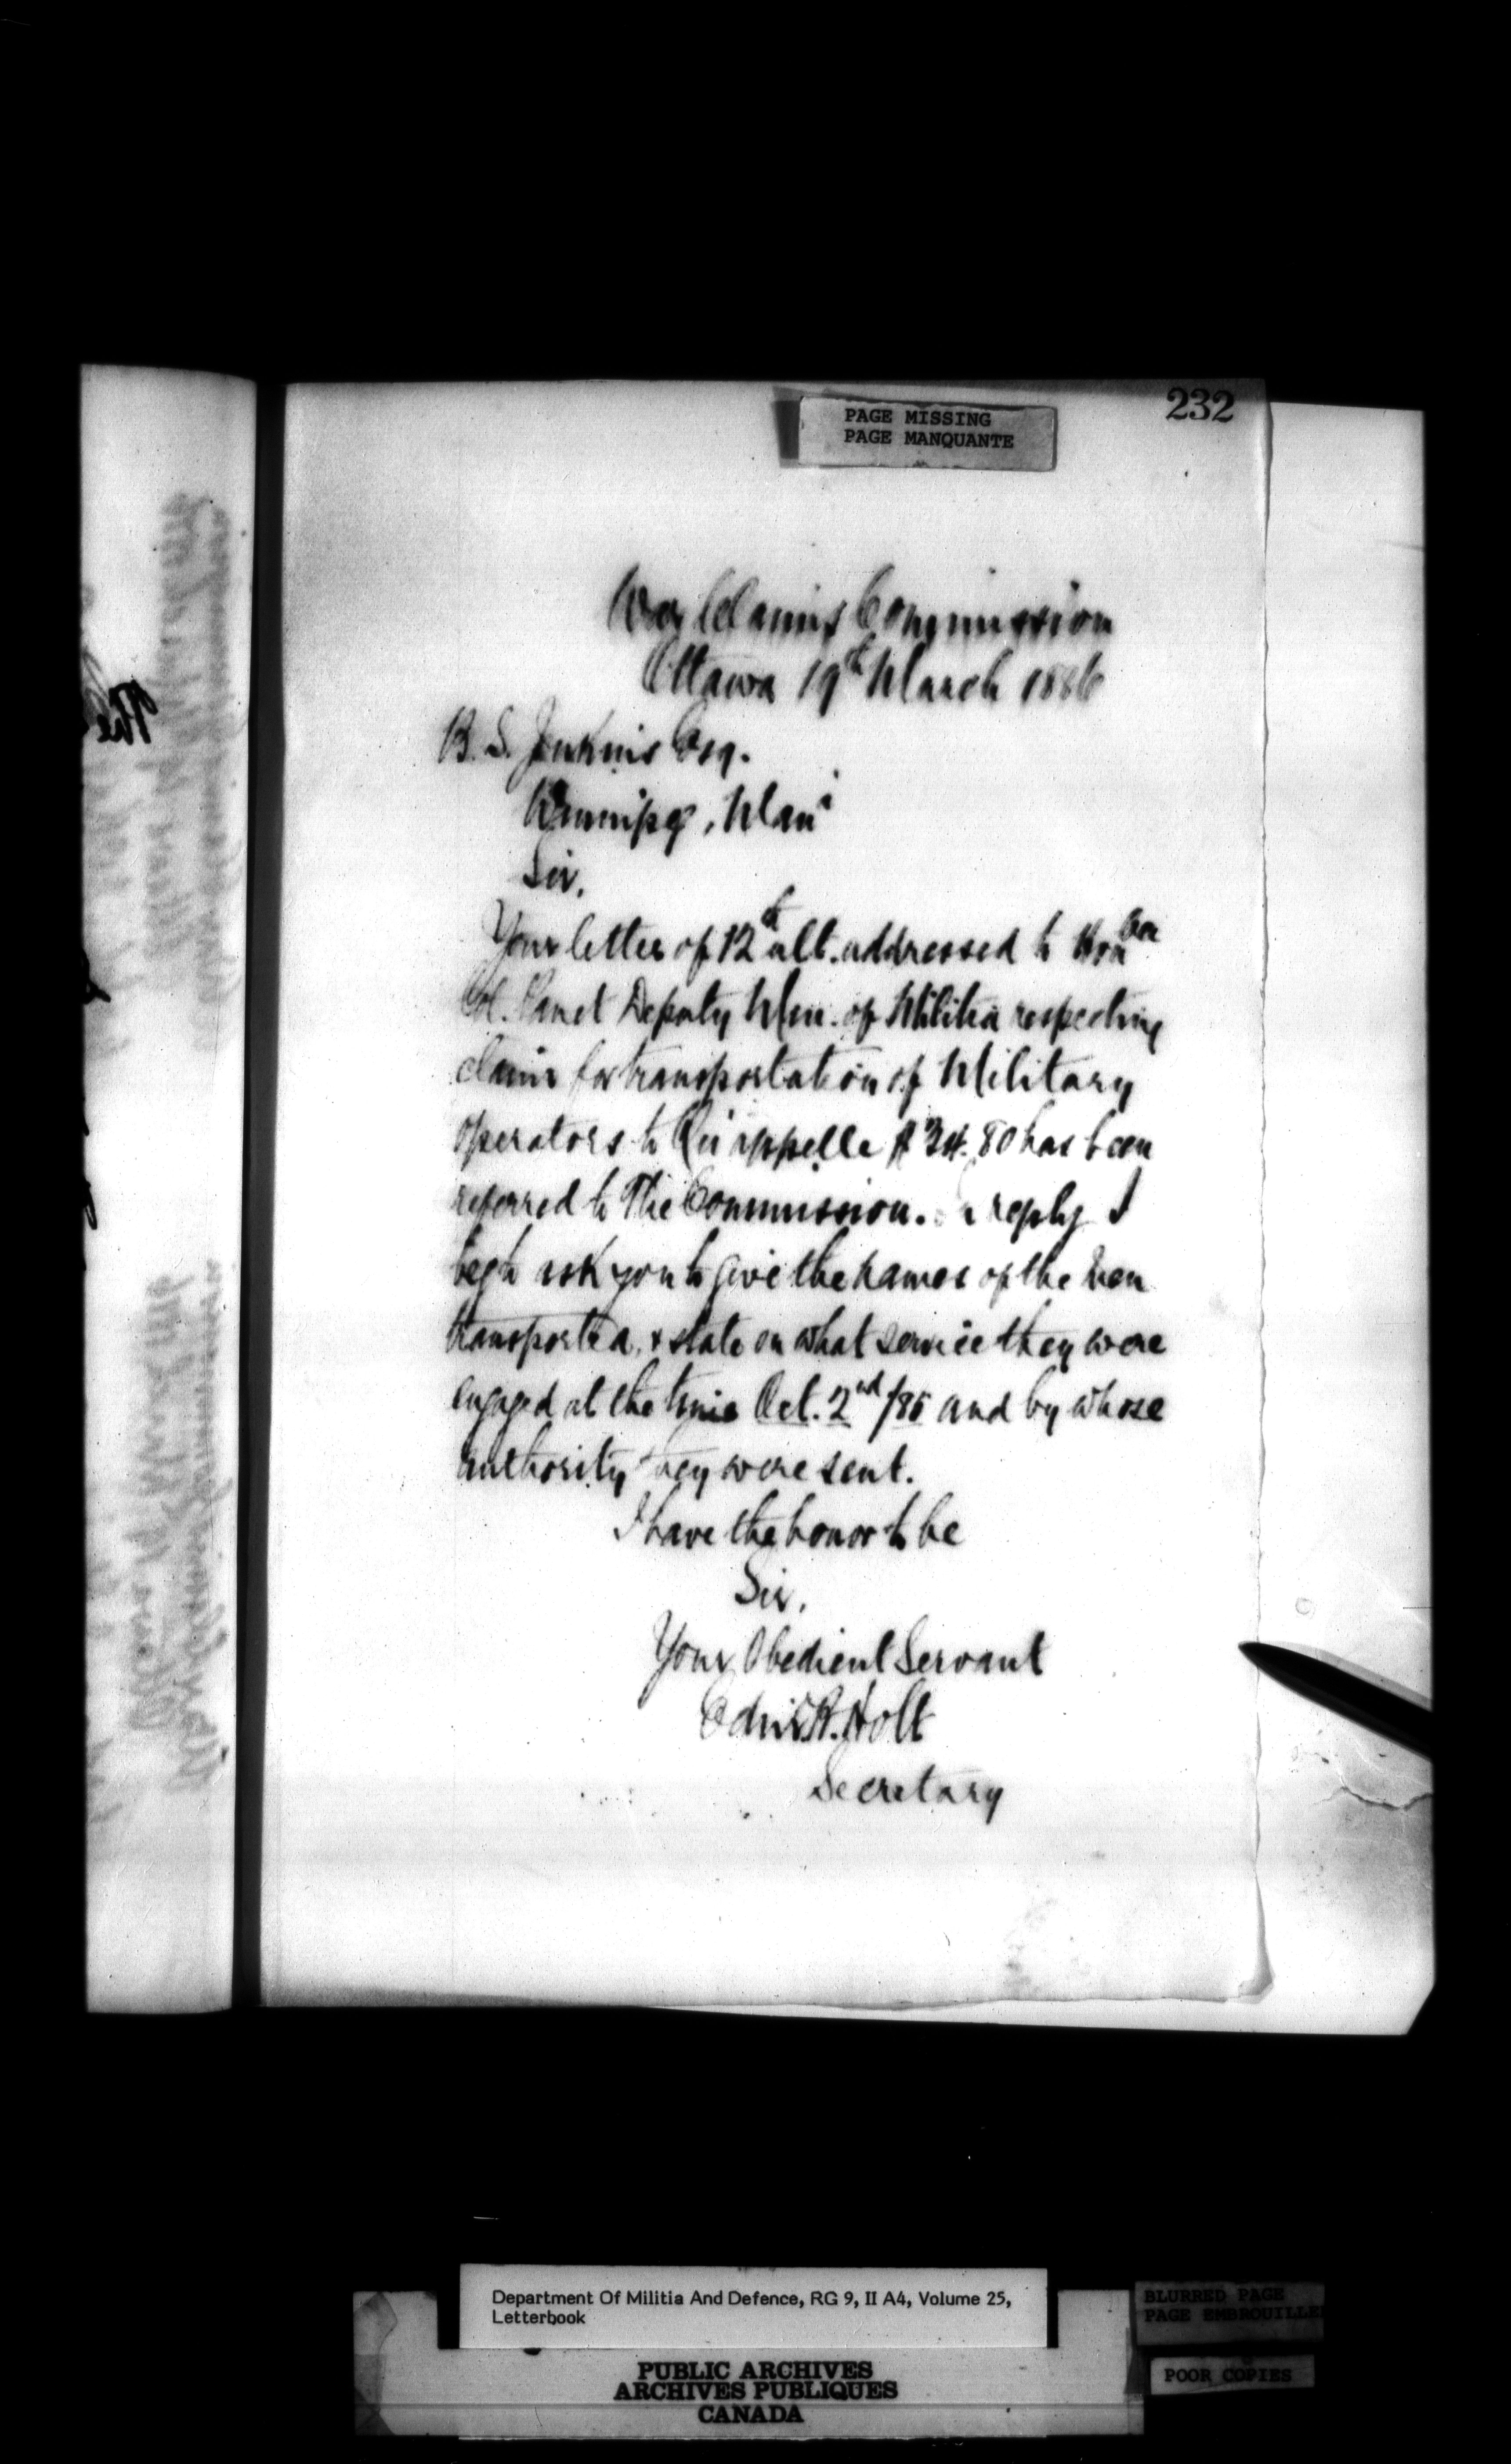 232
PAGE MISSING
PAGE MANQUANTE
War Claims Commission
Ottawa 19th March 1886
B. S. Jenkins Esq.
Winnipeg, Mani
Sir,
Your letter of 12th ult. addressed to Honble
Col. Panet Deputy Min. of Militia respecting
claim for transportation of Military
operators to Qu'appelle $24.80 has been
referred to The Commission. In reply I
beg to ask you to give the names of the men
transported, & state on what service they were
engaged at the time Oct. 2nd/85 and by whose
authority they were sent.
I have the honor to be
Sir,
Your Obedient Servant
Holt
Secretary
The
Department Of Militia And Defence, RG 9, II A4, Volume 25,
Letterbook
BLURRED PAGE
PAGE EMBROUILLE
POOR COPIES
PUBLIC ARCHIVES
ARCHIVES PUBLIQUES
CANADA